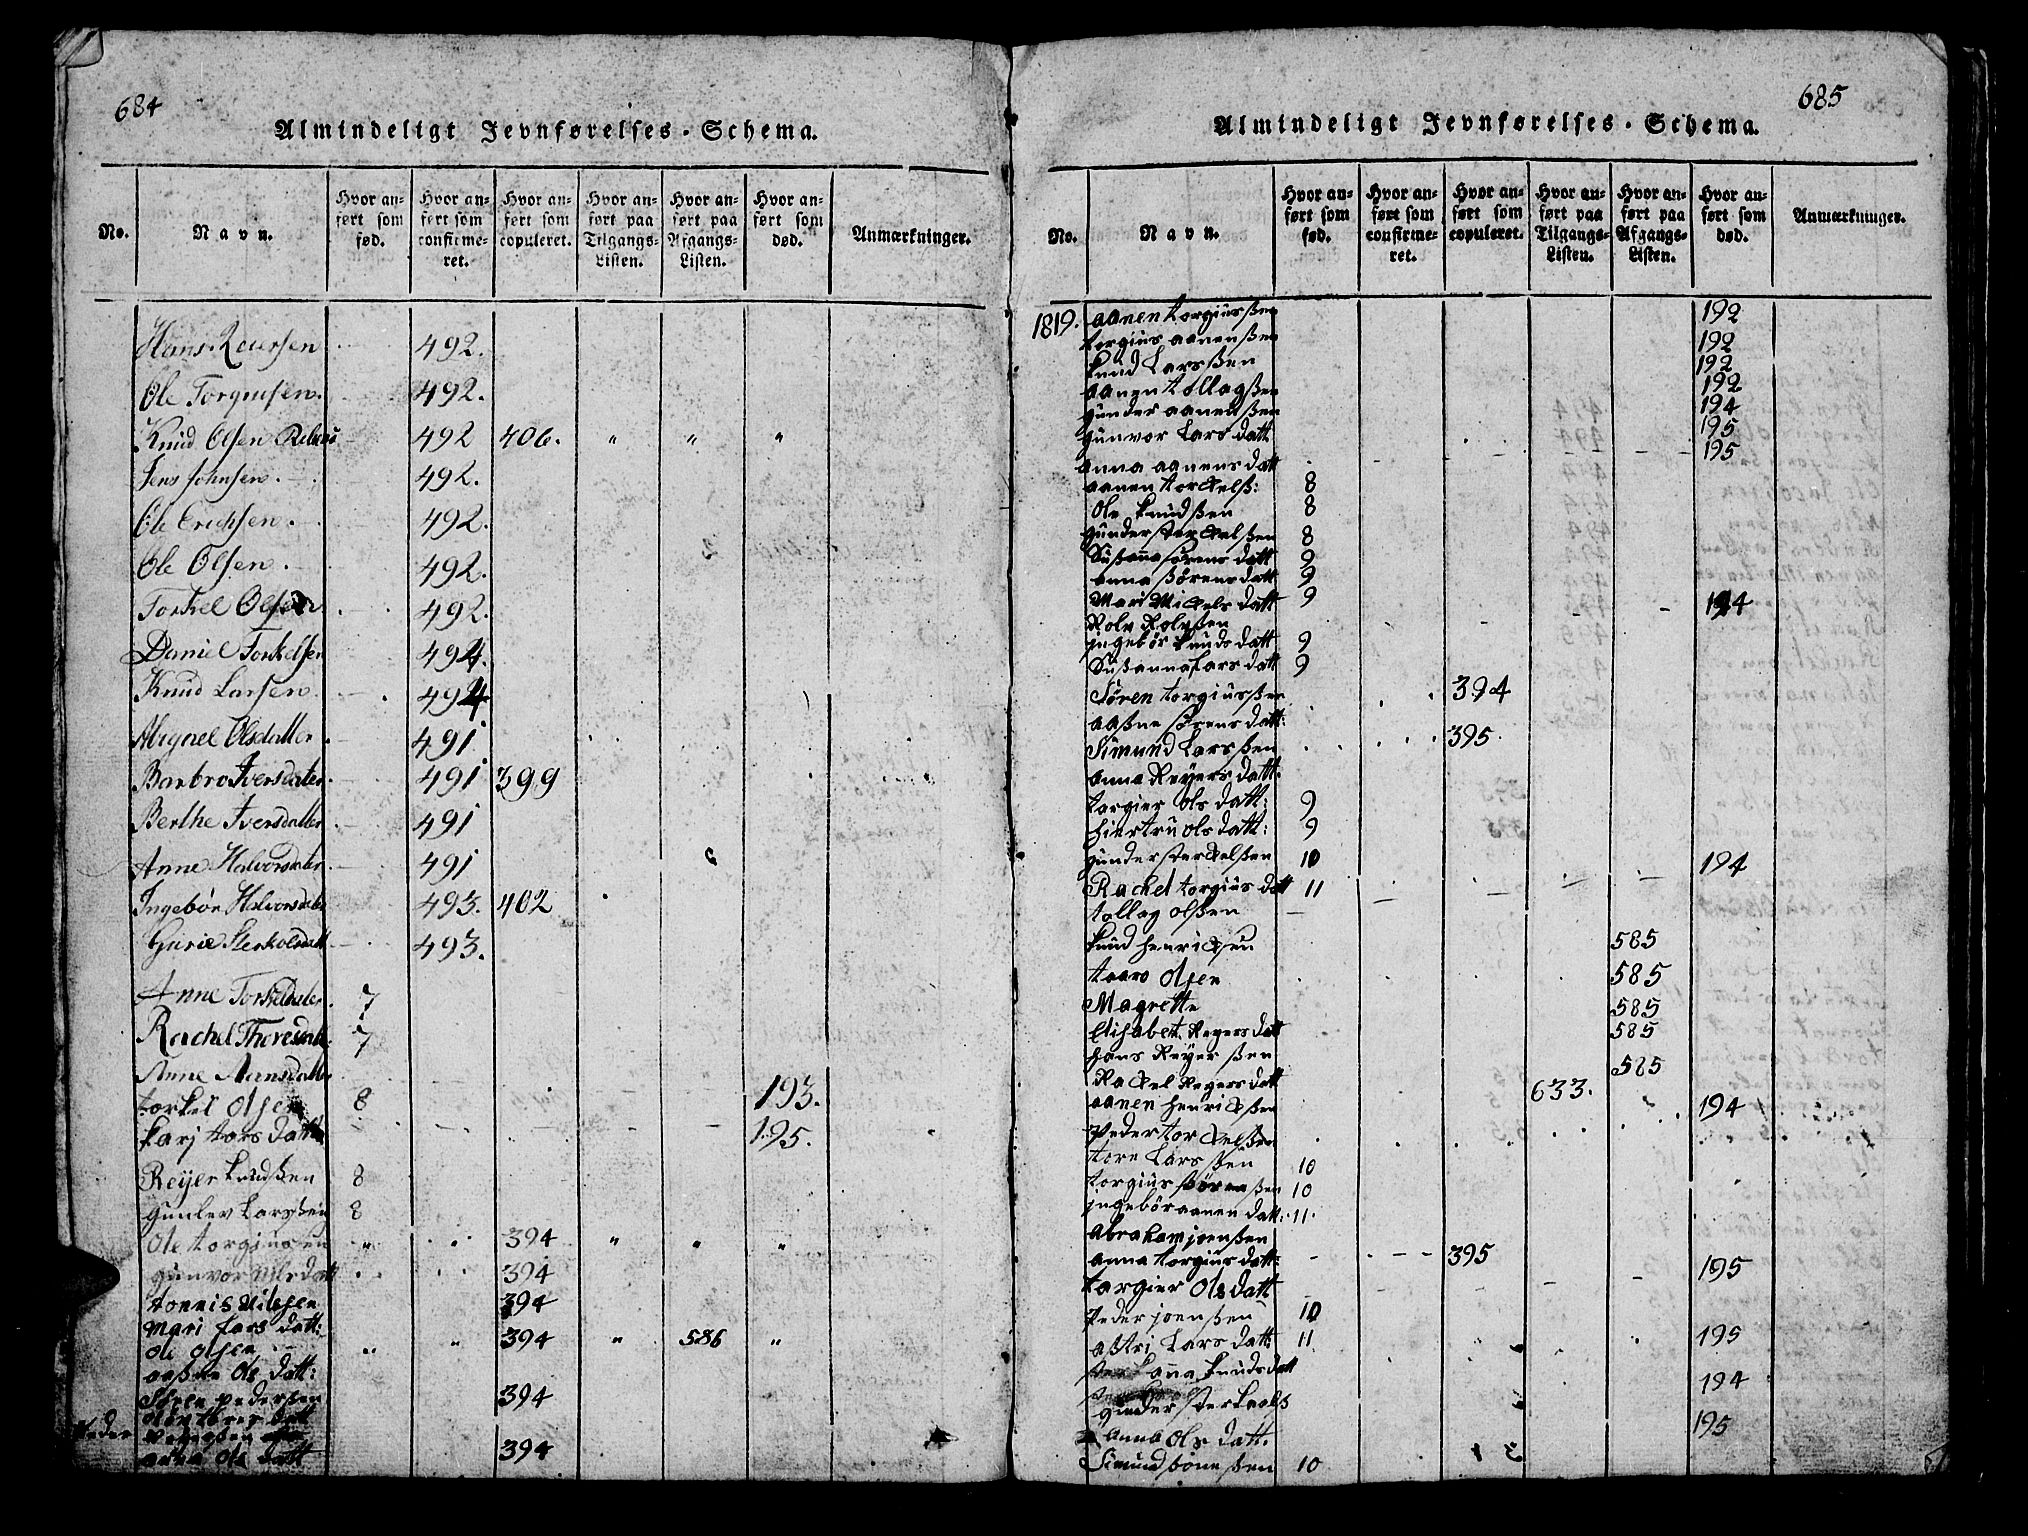 684
Almindeligt Jevnførelses-Schema.
No.
Navn.
Hvor anført som fød.
Hvor anført som confirmeret.
Hvor anført som copuleret.
Hvor anført paa Tilgangs-Listen.
Hvor anført paa Afgangs-Listen.
Hvor anført som død.
Anmærkninger.
Hans Reiersen 492.
Ole Torgiusen. 492.
Knud Olsen 492 406. " " "
Jens Johnsen. 492.
Ole Erichsen. 492.
Ole Olsen. 492.
Torkel Olsen 492.
Daniel Torkelsen 494.
Knud Larsen 494
Abignel Olsdatter 491
Barbro Iversdatter. 491 399
Berthe Iversdatter 491
Anne Halvorsdatter. 491
Ingebør Halvorsdatter 493. 402
Gurie Sterkolsdatt 493.
Anne Torkeldatter. 7
Rachel Thoresdatt. 7
Anne Aanensdatter 193.
torkel Olsen 8
karj tors datt 195.
Reyer knudßen 8
Gunlev Larsßen 8
Ole torgiusen " 394 " " "
gunvor Nils datt 394
tonnis Nilssen 394
Mari Lars datt:
Ole Olsen " " 394 " 586 "
aaßne Ols datt:
pedersen 394
Peder
anna Ols datt 394
685
Almindeligt Jevnførelses-Schema.
No.
Navn.
Hvor anført som fød.
Hvor anført som confirmeret.
Hvor anført som copuleret.
Hvor anført paa Tilgangs-Listen.
Hvor anført paa Afgangs-Listen.
Hvor anført som død.
Anmærkninger.
1819. aanen torgiusßen 192
torgius aanenßen 192
knud Larsßen 192
aanen tollagßen 192
gunder aanenßen 194
gunvor Lars datt 195
anna aanens datt 195
aanen torkelß: 8
Ole knudßen 8
gunder sterkelßen 8
Sußanna sørens datt 9
anna sørens datt 9
Mari Mickels datt 9
Rolv Rolvßen 194
jngebør knuds datt 9
Sußanna Lars datt 9
Søren torgiusßen 394
aaßne sørens datt:
Simund Larsßen 395.
anna Reyers datt:
targier ols datt: 9
hiertru ols datt: 9
gunder sterkelßen 10 194
Rachel torgius datt 11
tollag olßen
knud henricksen 585
taaro Olsen 585
Magrette 585
Elisabet Reyers datt 585
hans Reyerßen
Rackel Reyers datt 633. 585
aanen henrickßen 194
Peder torkelßen
tore Larsßen 10
torgius Sørenßen 10
jngebør aanen datt: 11.
abraham joenßen
anna torgius datt: 395
targier Ols datt 195
Peder joenßen 10
astri Lars datt: 11
anna knuds datt 195
gunder sterkels 194
anna Ols datt. 195
Simund 10